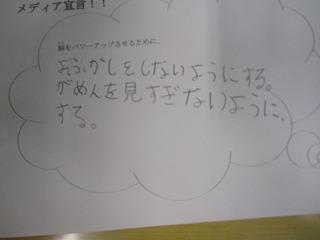 メディア宣言！！
脳をパワーアップさせるために、
よふかしをしないようにする。
がめんを見すぎないように、
する。